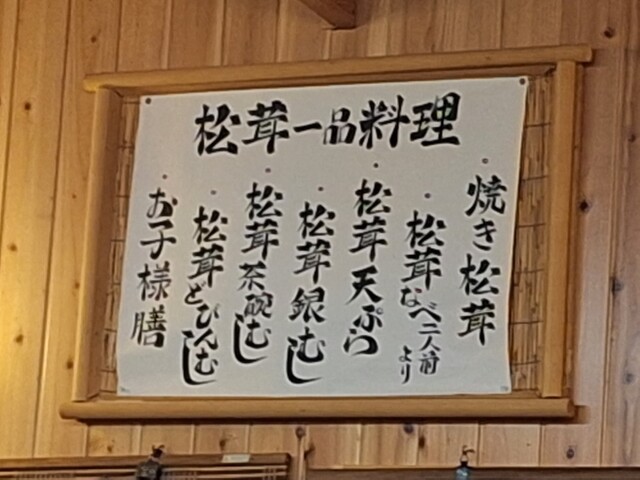 松茸一品料理
・焼き松茸
・松茸なべ二人前より
・松茸天ぷら
・松茸銀むし
・松茸茶碗むし
・松茸どびんむし
・お子様膳